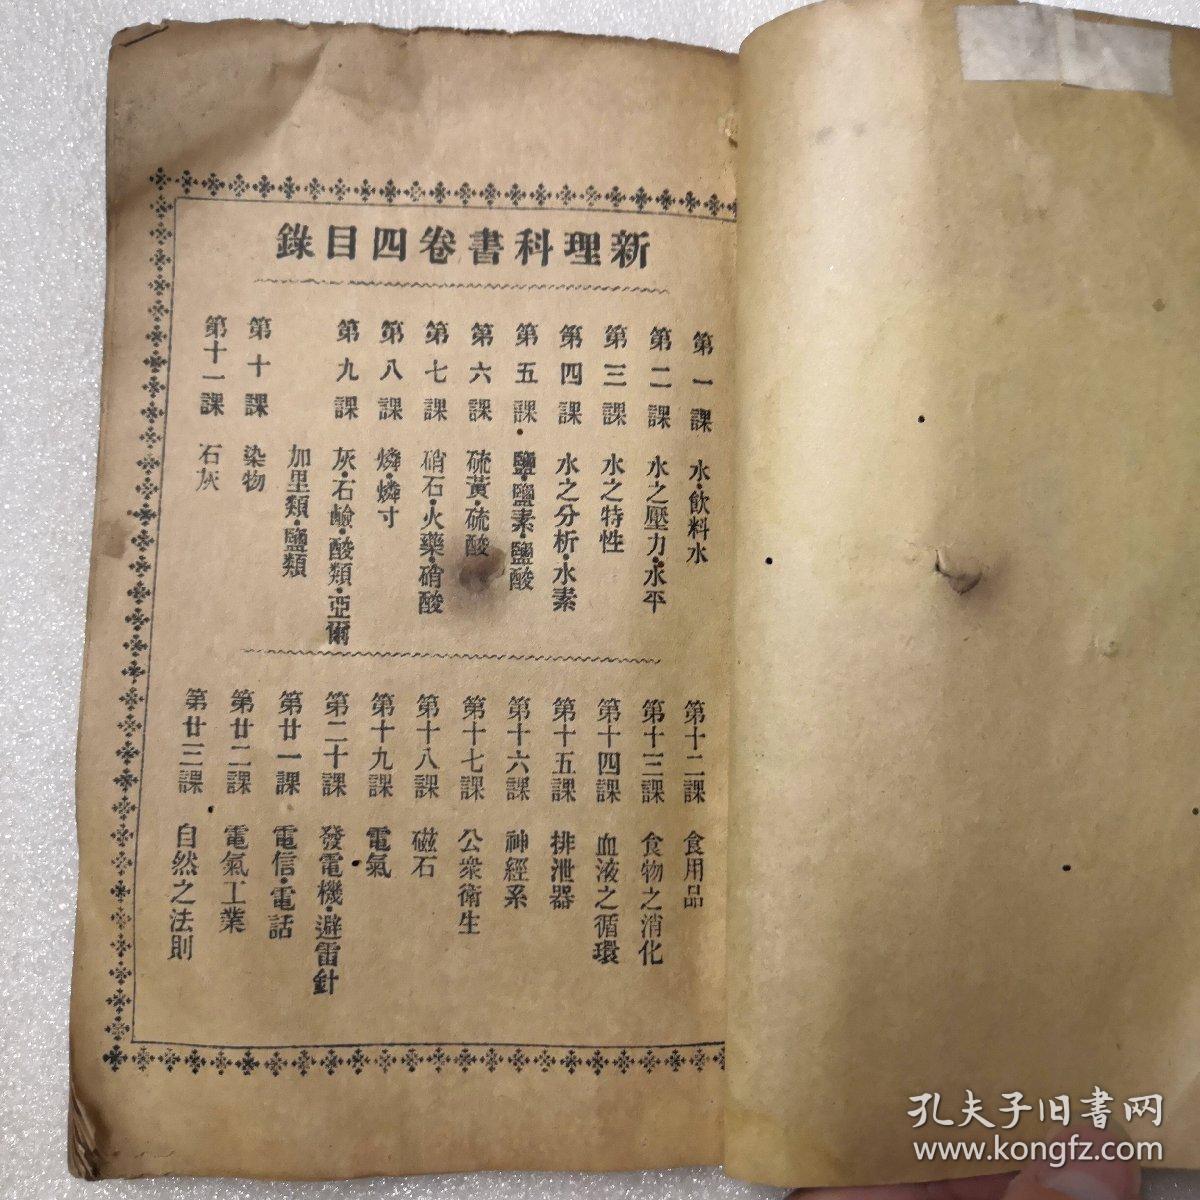 新理科書卷四目錄
第一課 水·飲料水
第二課 水之壓力·水平
第三課 水之特性
第四課 水之分析·水素
第五課 鹽·鹽素·鹽酸
第六課 硫黃·硫酸
第七課 硝石·火藥·硝酸
第八課 燐·燐寸
第九課 灰·石鹼·酸類·亞爾
加里類·鹽類
第十課 染物
第十一課 石灰
第十二課 食用品
第十三課 食物之消化
第十四課 血液之循環
第十五課 排泄器
第十六課 神經系
第十七課 公衆衛生
第十八課 磁石
第十九課 電氣
第二十課 發電機·避雷針
第廿一課 電信·電話
第廿二課 電氣工業
第廿三課 自然之法則
孔夫子旧書网
www.kongfz.com